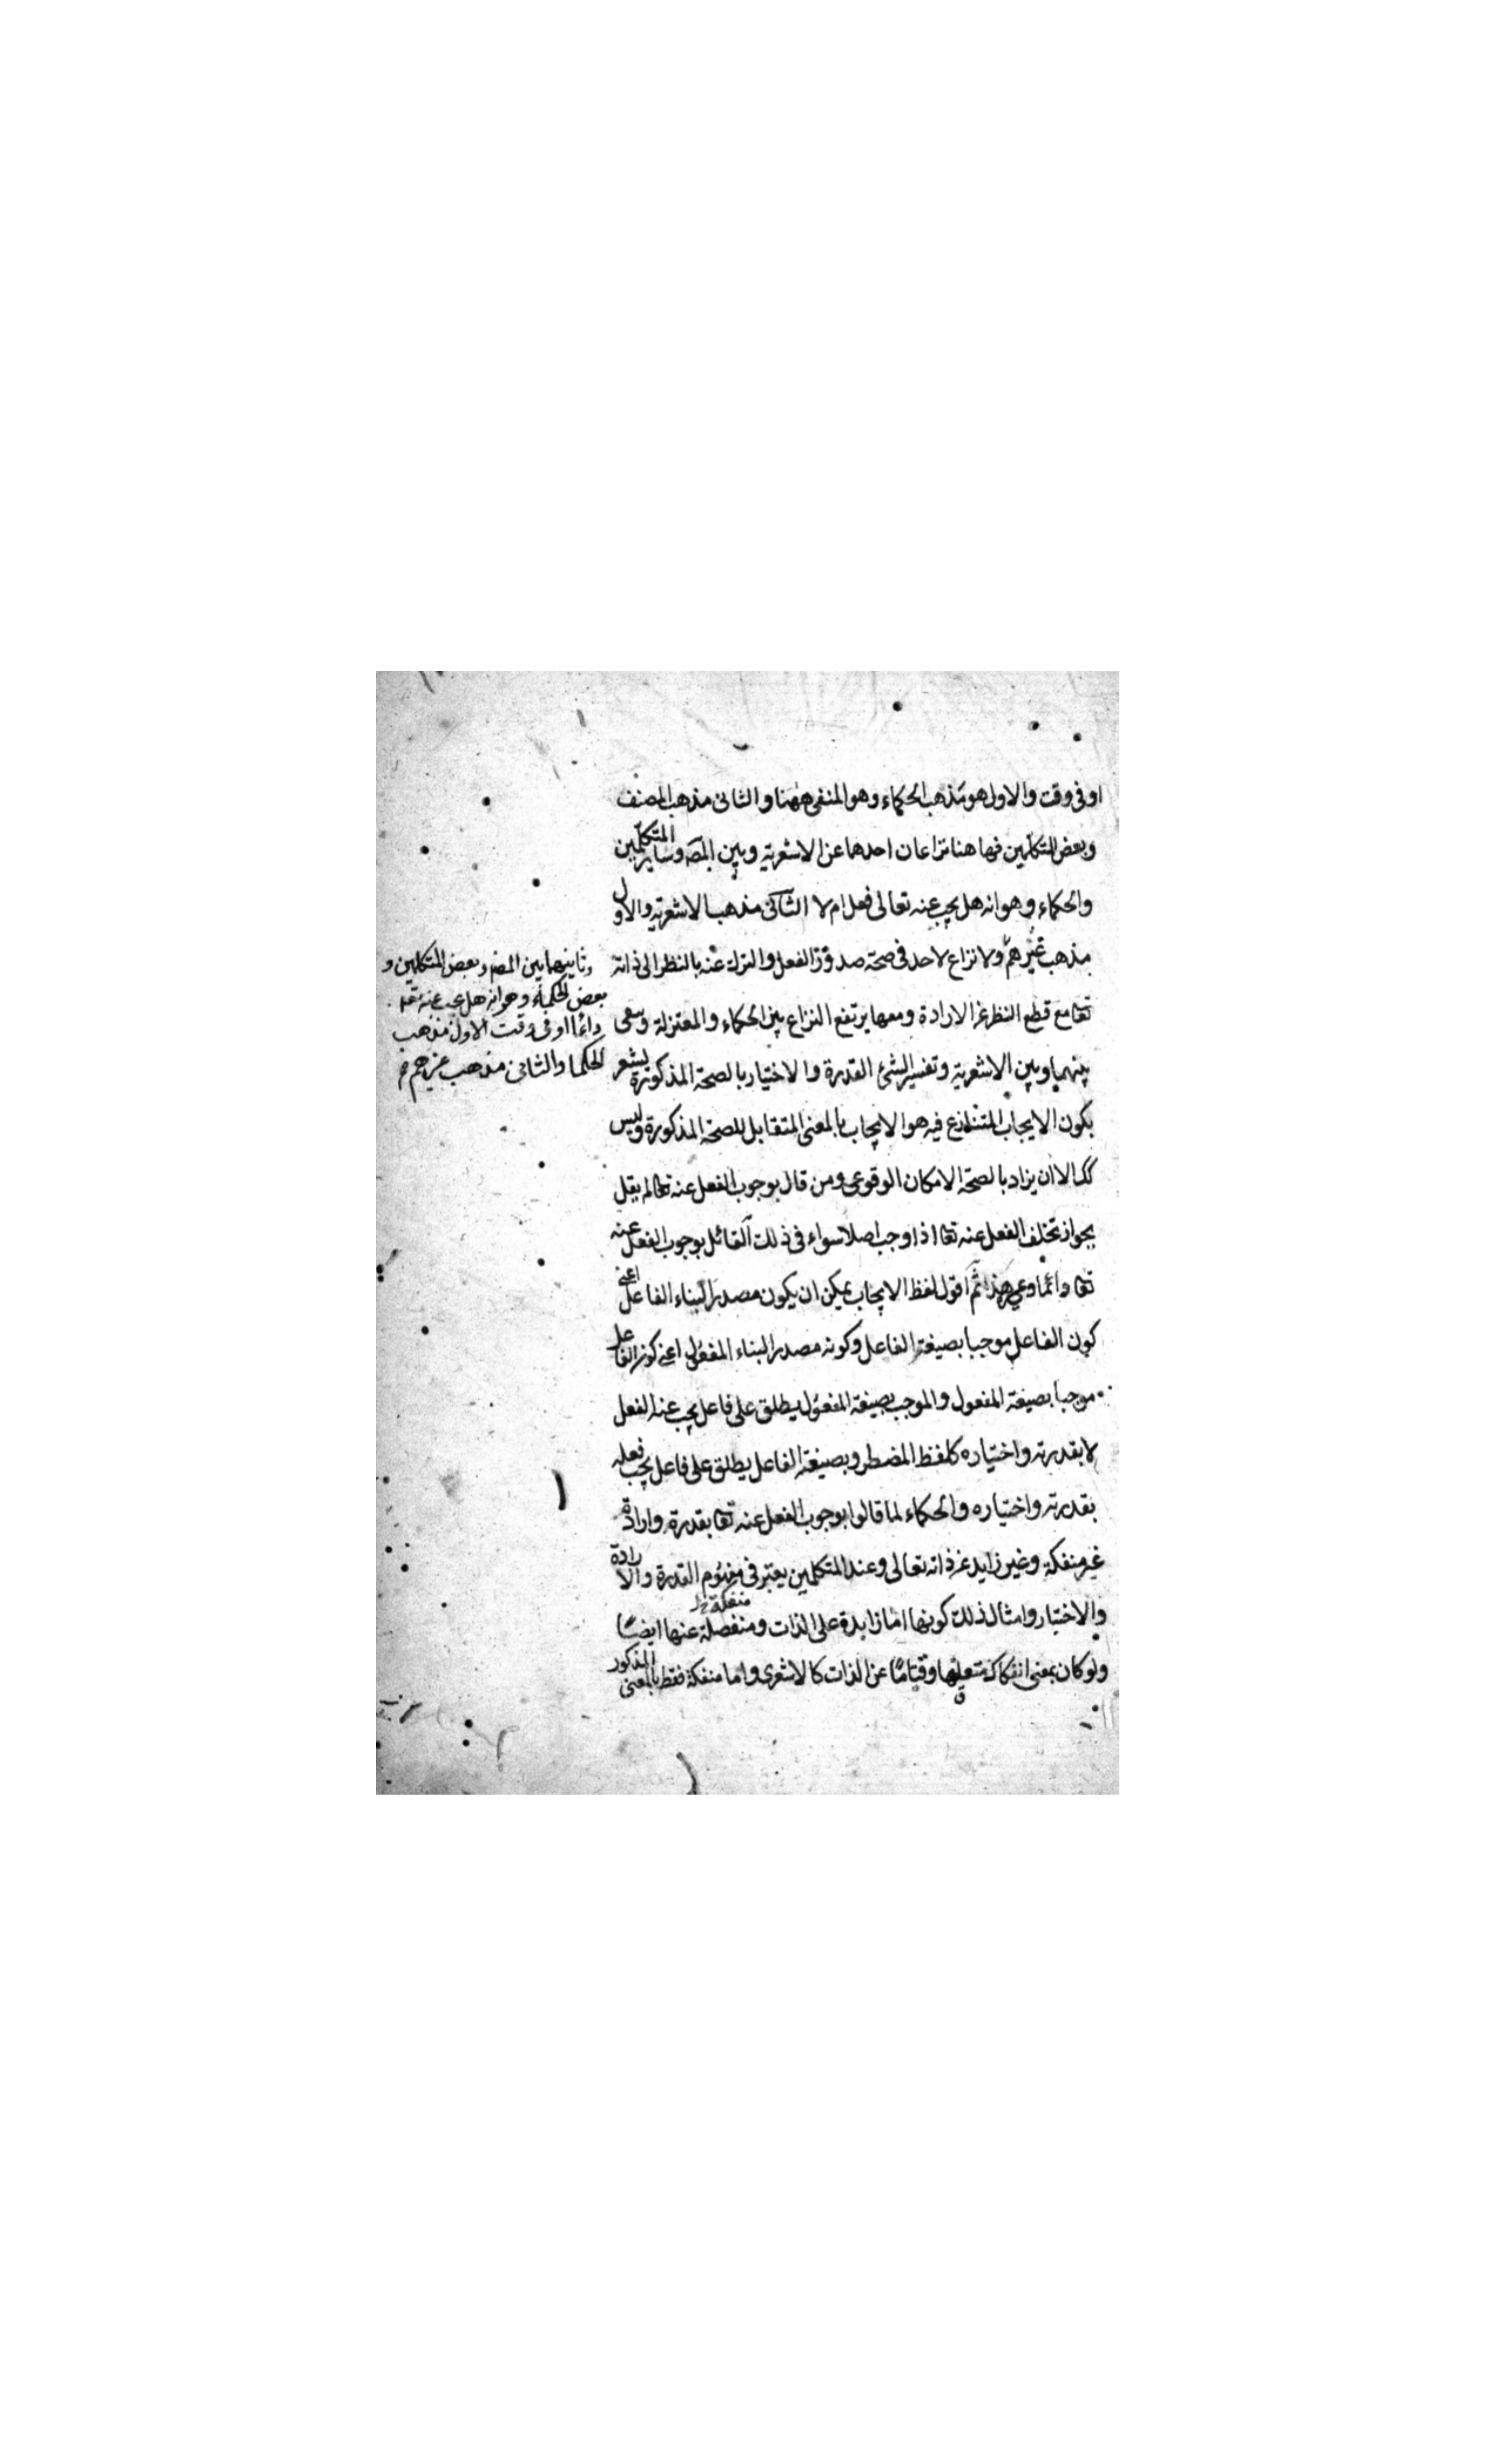 او فى وقت والاول هو مذهب الحكماء وهو المنفى ههنا والثانى مذهب المصنف
وبعض المتكلمين فها هنا نزاعان احدهما عن الاشعرية وبين المصه وساير المتكلمين
والحكماء وهو انه هل يجب عنه تعالى فعل ام لا الثانى مذهب الاشعرية والاول
مذهب غيرهم ولا نزاع لاحد فى صحة صدور الفعل والترك عنه بالنظر الى ذاته
تعا مع قطع النظر عن الارادة ومعها يرتفع النزاع بين الحكماء والمعتزلة وبقى
بينهما وبين الاشعرية وتفسير القدرة والاختيار بالصحة المذكورة يشعر
بكون الايجاب المتنازع فيه هو الايجاب بالمعنى المتقابل للصحة المذكورة وليس
كك الا ان يراد بالصحة الامكان الوقوعى ومن قال بوجوب الفعل عنه تعا لم يقل
بجواز تخلف الفعل عنه تعا اذا وجب اصلا سواء فى ذلك القائل بوجوب الفعل عنه
تعا دائما وغيره هذا ثم اقول لفظ الايجاب يمكن ان يكون مصدرا لبناء الفاعل اعنى
كون الفاعل موجبا بصيغة الفاعل وكونه مصدرا لبناء المفعول اعنى كون الفاعل
موجبا بصيغة المفعول والموجب بصيغة المفعول يطلق على فاعل يجب عنه الفعل
لا بقدرته واختياره كلفظ المضطر وبصيغة الفاعل يطلق على فاعل يجب فعله
بقدرته واختياره والحكماء لما قالوا بوجوب الفعل عنه تعا بقدرة وارادة
غير منفكة وغير زايد عن ذاته تعالى وعند المتكلمين يعتبر فى مفهوم القدرة والارادة
والاختيار وامثال ذلك كونها اما زايدة على الذات ومنفصلة عنها ايضا
منفكة
ولو كان بمعنى انفكاك متعلقها وقتا ما عن الذات كالاشعرى واما منفكة فقط بالمعنى المذكور
وثانيهما بين المصه وبعض المتكلمين و
بعض الحكماء وهو انه هل يجب عنه تعه
دائما او فى وقت الاول مذهب
الحكما والثانى مذهب غيرهم